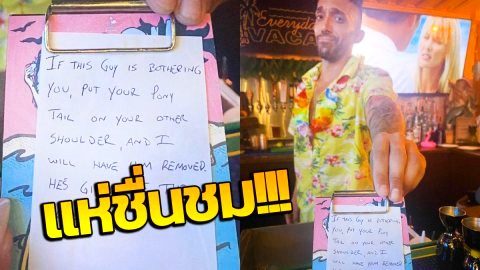 IF THIS GUY IS BOTHERING
YOU, PUT YOUR PONY
TAIL ON YOUR OTHER
SHOULDER, AND I
WILL HAVE HIM REMOVED.
HE'S
แห่ชื่นชม!!!
Everyday
VACA
IF THIS GUY IS BOTHERING
YOU, PUT YOUR PONY
TAIL ON YOUR OTHER
SHOULDER, AND I
WILL HAVE HIM REMOVED